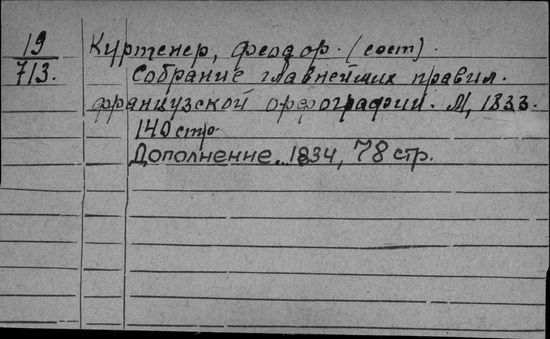 19
713.
Куртенер, Феодор. (сост).
Собрание главнейших правил.
французской орфографии. М, 1833.
140 стр.
Дополнение. 1834, 78 стр.